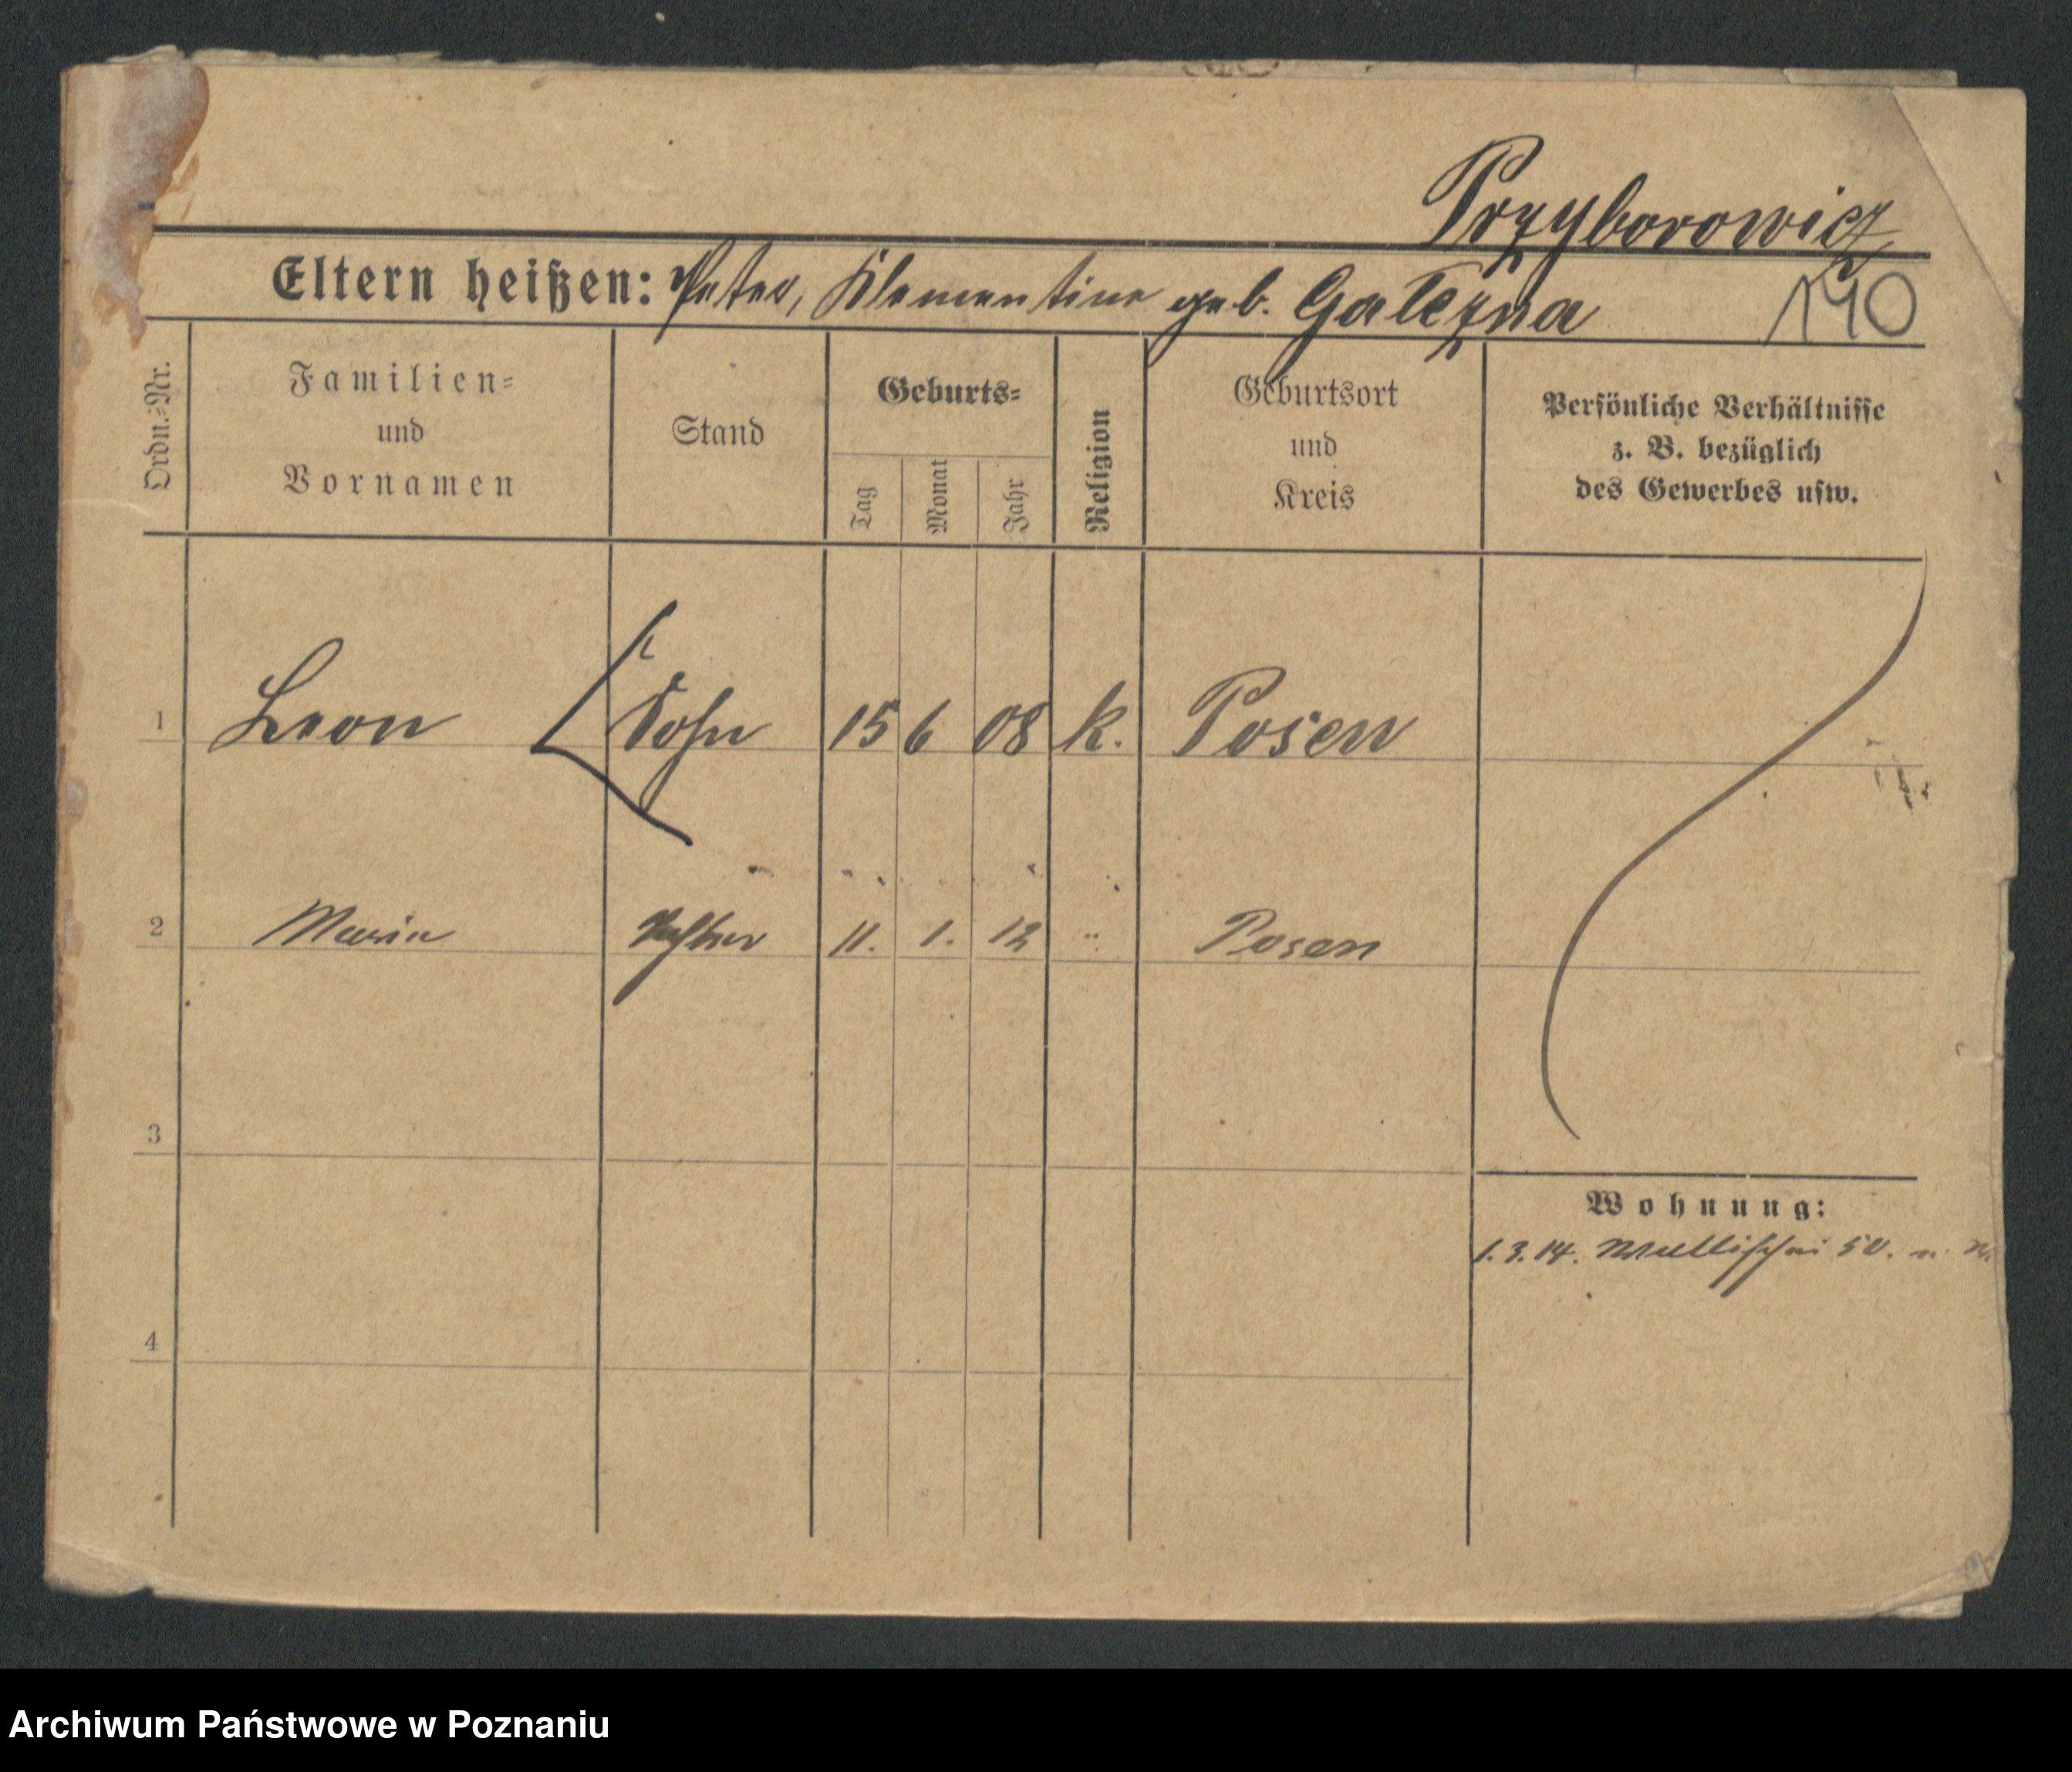 Przyborowicz
Eltern heißen: Peter, Klementine geb. Galezna
140
Ordn.-Nr.
Familien-
und
Vornamen
Stand
Geburts-
Tag
Monat
Jahr
Religion
Geburtsort
und
Kreis
Persönliche Verhältnisse
z. B. bezüglich
des Gewerbes usw.
1 Leon Sohn 15 6 08 k. Posen
2 Maria Tochter 11. 1. 12 " Posen
3
Wohnung:
1.3.14. Wallischei 50.
4
Archiwum Państwowe w Poznaniu